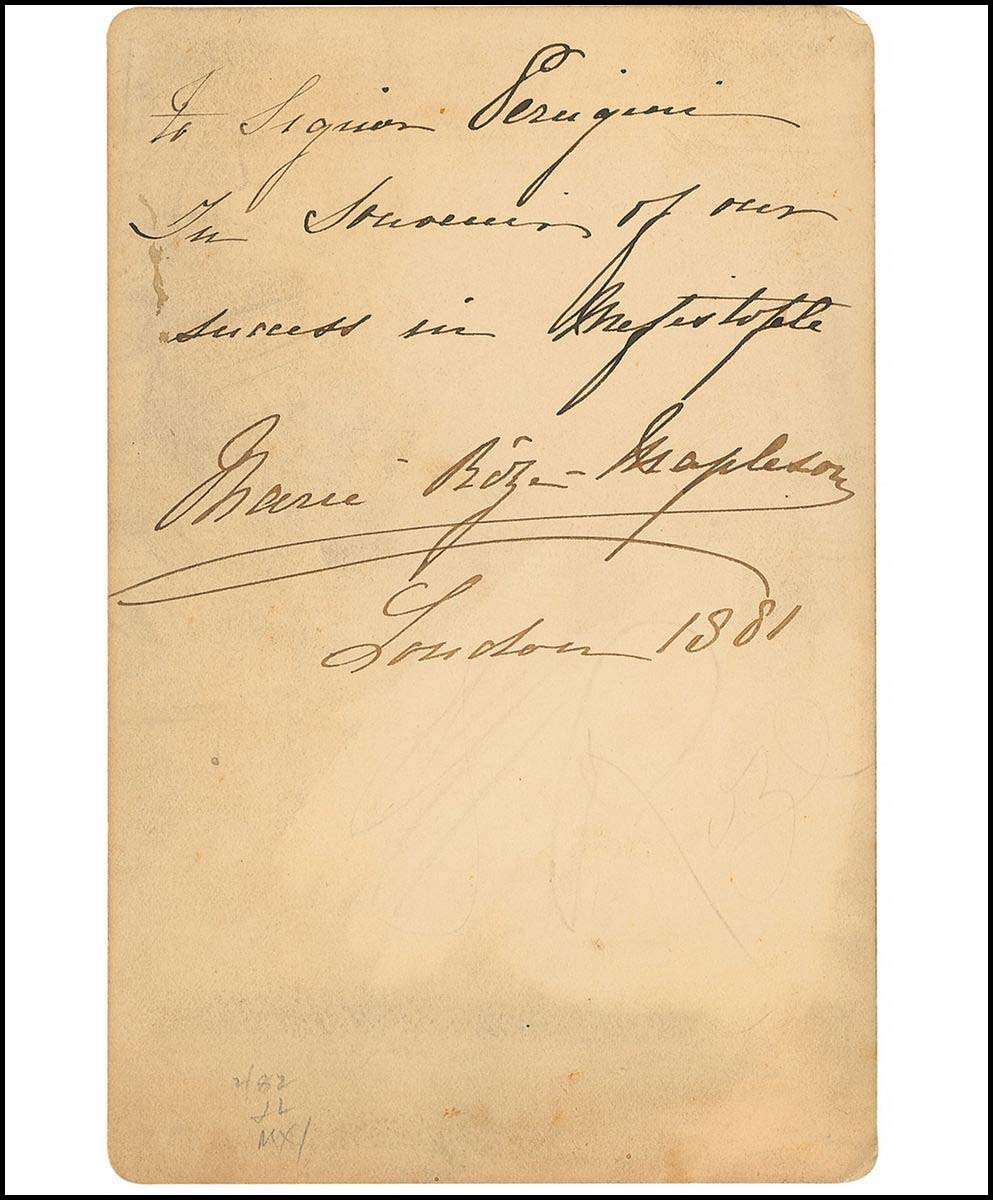 to Signor Perugini
In Souvenir of our
success in Mefistofele
Marie Rôze-Mapleson
London 1881